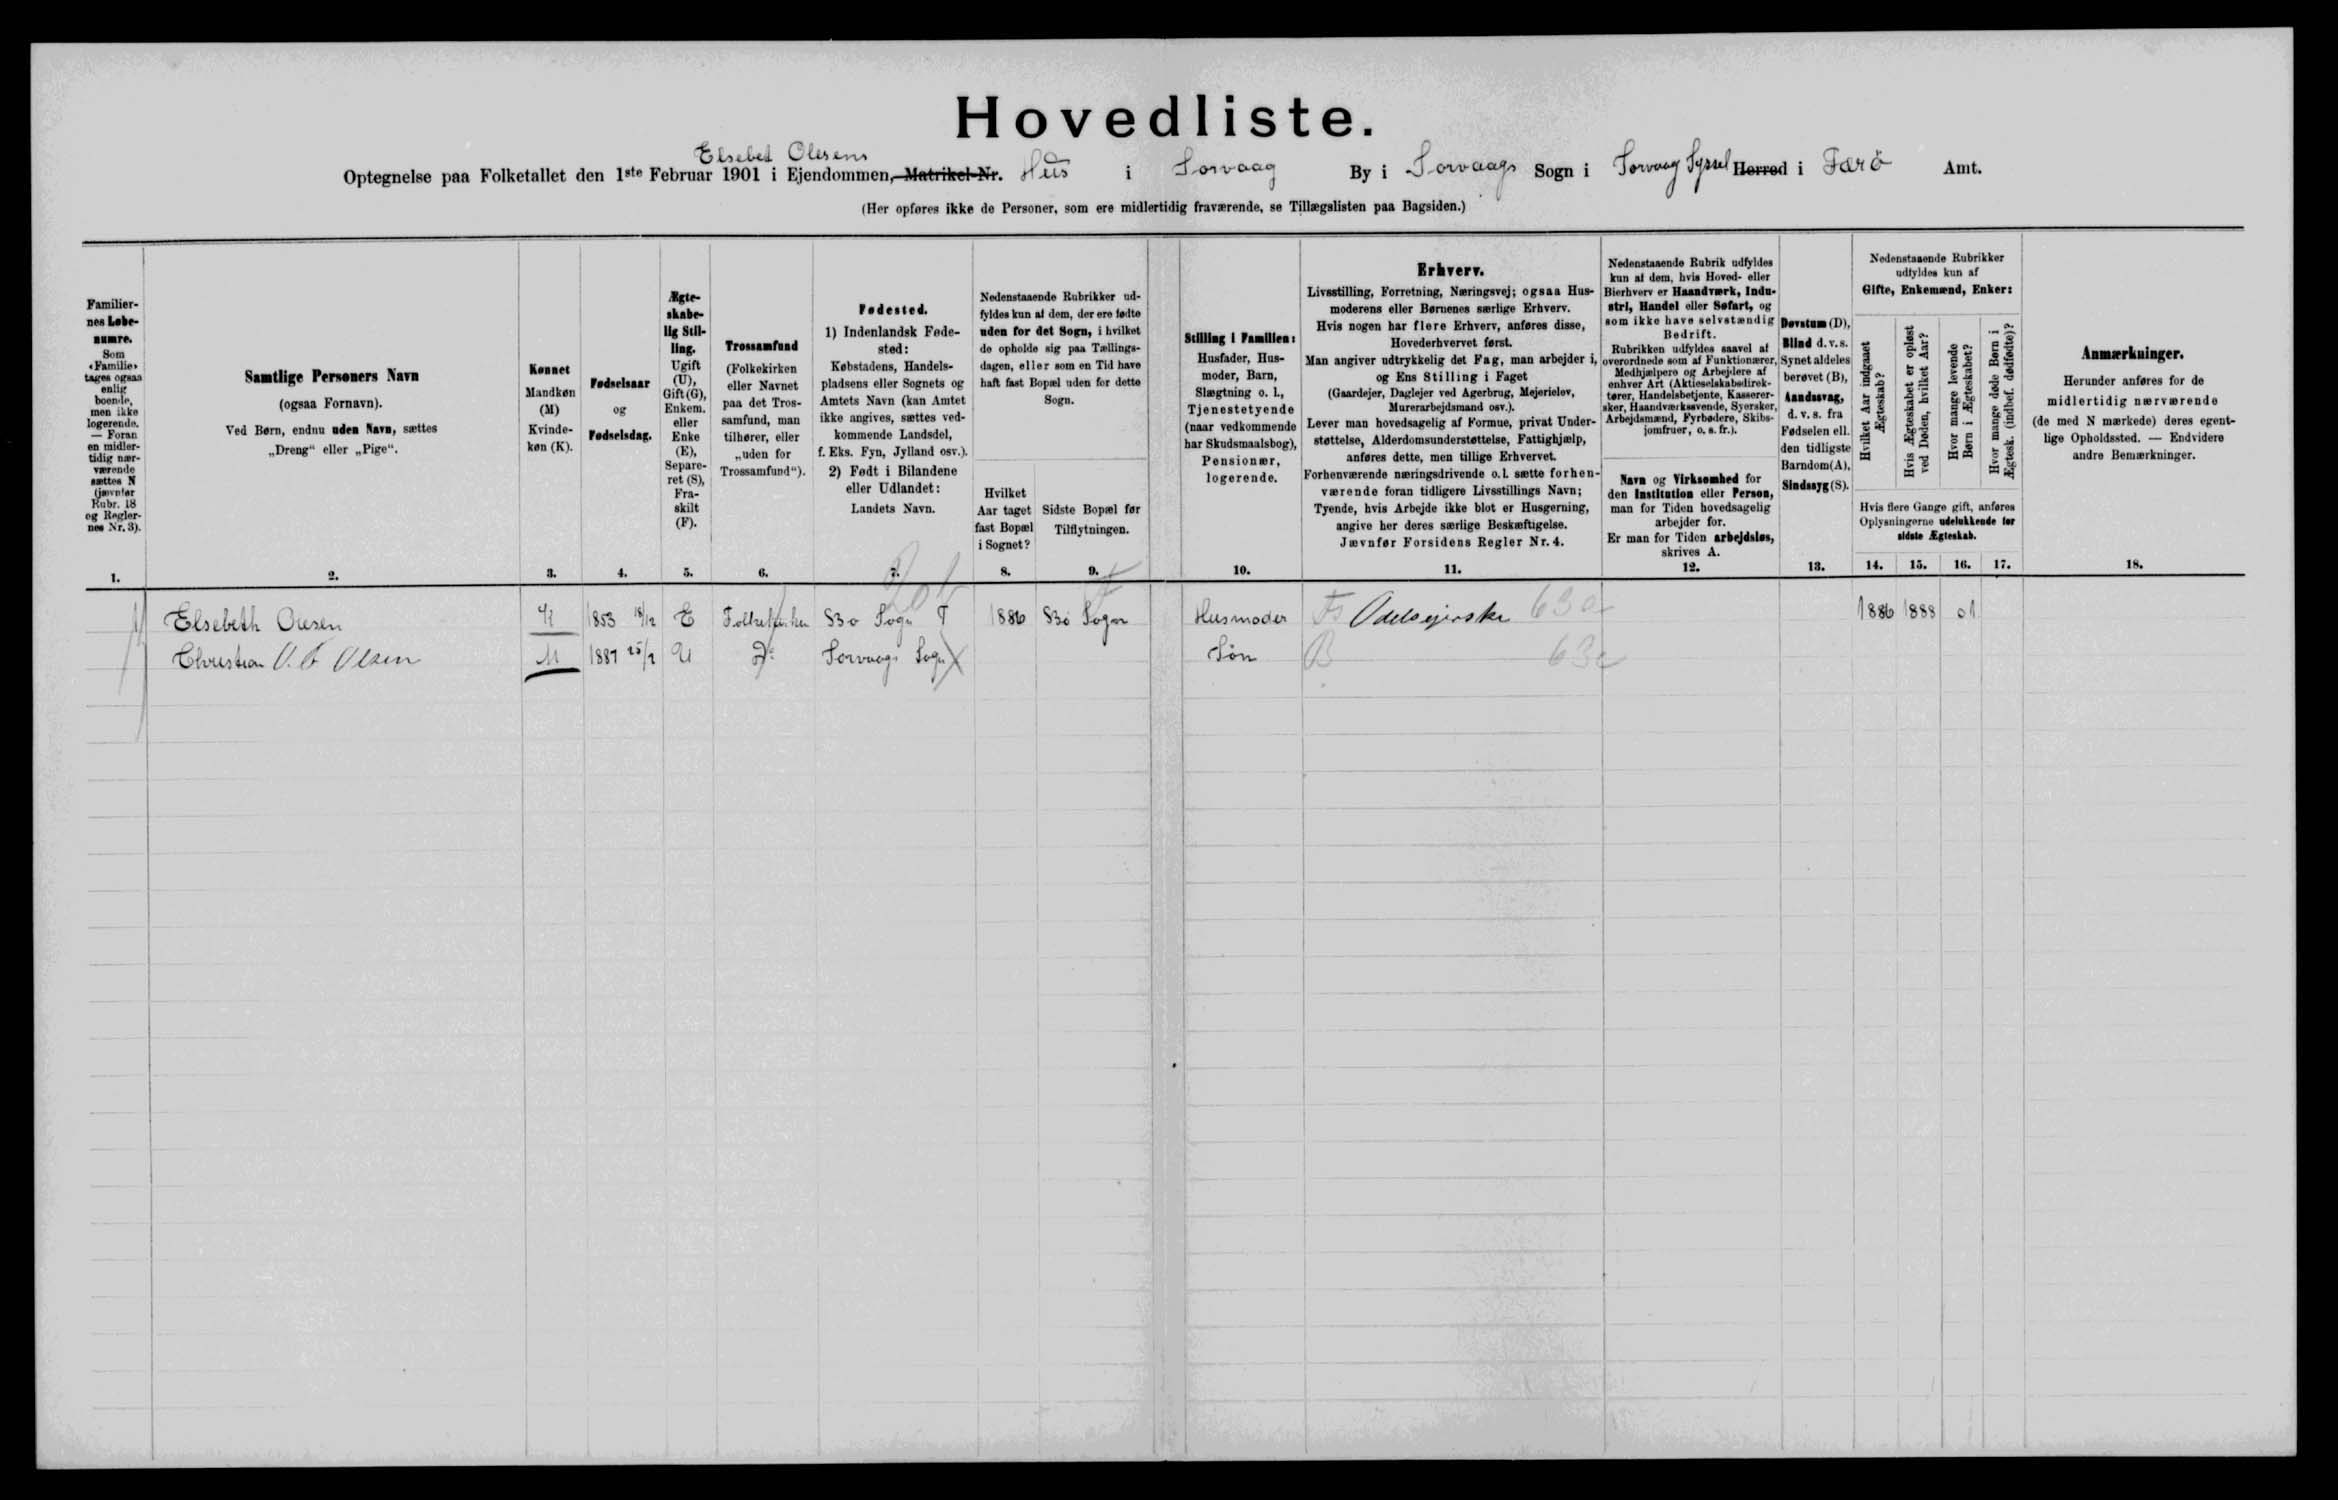 Hovedliste.
Elsebet Olesens
Optegnelse paa Folketallet den 1ste Februar 1901 i Ejendommen, Matrikel-Nr. Hus i Sorvaag By i Sorvaags Sogn i Sorvaag Syssel Herred i Færø Amt.
(Her opføres ikke de Personer, som ere midlertidig fraværende, se Tillægslisten paa Bagsiden.)
Familier-
nes Løbe-
numre.
Som
«Familie»
tages ogsaa
enlig
boende,
men ikke
logerende.
— Foran
en midler-
tidig nær-
værende
sættes N
(jævnfør
Rubr. 18
og Regler-
nes Nr. 3).
1.
Samtlige Personers Navn
(ogsaa Fornavn).
Ved Børn, endnu uden Navn, sættes
„Dreng“ eller „Pige“.
2.
Kønnet
Mandkøn
(M)
Kvinde-
køn (K).
3.
Fødselsaar
og
Fødselsdag.
4.
Ægte-
skabe-
lig Stil-
ling.
Ugift
(U),
Gift (G),
Enkem.
eller
Enke
(E),
Separe-
ret (S),
Fra-
skilt
(F).
5.
Trossamfund
(Folkekirken
eller Navnet
paa det Tros-
samfund, man
tilhører, eller
„uden for
Trossamfund“).
6.
Fødested.
1) Indenlandsk Føde-
sted:
Købstadens, Handels-
pladsens eller Sognets og
Amtets Navn (kan Amtet
ikke angives, sættes ved-
kommende Landsdel,
f. Eks. Fyn, Jylland osv.).
2) Født i Bilandene
eller Udlandet:
Landets Navn.
7.
Nedenstaaende Rubrikker ud-
fyldes kun af dem, der ere fødte
uden for det Sogn, i hvilket
de opholde sig paa Tællings-
dagen, eller som en Tid have
haft fast Bopæl uden for dette
Sogn.
Hvilket
Aar taget
fast Bopæl
i Sognet?
8.
Sidste Bopæl før
Tilflytningen.
9.
Stilling i Familien:
Husfader, Hus-
moder, Barn,
Slægtning o. l.,
Tjenestetyende
(naar vedkommende
har Skudsmaalsbog),
Pensionær,
logerende.
10.
Erhverv.
Livsstilling, Forretning, Næringsvej; ogsaa Hus-
moderens eller Børnenes særlige Erhverv.
Hvis nogen har flere Erhverv, anføres disse,
Hovederhvervet først.
Man angiver udtrykkelig det Fag, man arbejder i,
og Ens Stilling i Faget
(Gaardejer, Daglejer ved Agerbrug, Mejerielev,
Murerarbejdsmand osv.).
Lever man hovedsagelig af Formue, privat Under-
støttelse, Alderdomsunderstøttelse, Fattighjælp,
anføres dette, men tillige Erhvervet.
Forhenværende næringsdrivende o. l. sætte forhen-
værende foran tidligere Livsstillings Navn;
Tyende, hvis Arbejde ikke blot er Husgerning,
angive her deres særlige Beskæftigelse.
Jævnfør Forsidens Regler Nr. 4.
11.
Nedenstaaende Rubrik udfyldes
kun af dem, hvis Hoved- eller
Bierhverv er Haandværk, Indu-
stri, Handel eller Søfart, og
som ikke have selvstændig
Bedrift.
Rubrikken udfyldes saavel af
overordnede som af Funktionærer,
Medhjælpere og Arbejdere af
enhver Art (Aktieselskabsdirek-
tører, Handelsbetjente, Kasserer-
sker, Haandværkssvende, Syersker,
Arbejdsmænd, Fyrbødere, Skibs-
jomfruer, o. s. fr.).
Navn og Virksomhed for
den Institution eller Person,
man for Tiden hovedsagelig
arbejder for.
Er man for Tiden arbejdsløs,
skrives A.
12.
Døvstum (D),
Blind d. v. s.
Synet aldeles
berøvet (B),
Aandssvag,
d. v. s. fra
Fødselen ell.
den tidligste
Barndom (A),
Sindssyg (S).
13.
Nedenstaaende Rubrikker
udfyldes kun af
Gifte, Enkemænd, Enker:
Hvilket Aar indgaaet
Ægteskab?
Hvis Ægteskabet er opløst
ved Døden, hvilket Aar?
Hvor mange levende
Børn i Ægteskabet?
Hvor mange døde Børn i
Ægtesk. (indbef. dødfødte)?
Hvis flere Gange gift, anføres
Oplysningerne udelukkende for
sidste Ægteskab.
14. 15. 16. 17.
Anmærkninger.
Herunder anføres for de
midlertidig nærværende
(de med N mærkede) deres egent-
lige Opholdssted. — Endvidere
andre Bemærkninger.
18.
Elsebeth Olesen K 1853 18/12 E Folkekirken Bø Sogn F 1886 Bø Sogn Husmoder Fs Odelsejerske 63a 1886 1888 01
Christian Olsen M 1887 25/2 U Do Sorvaags Sogn Søn B 63c